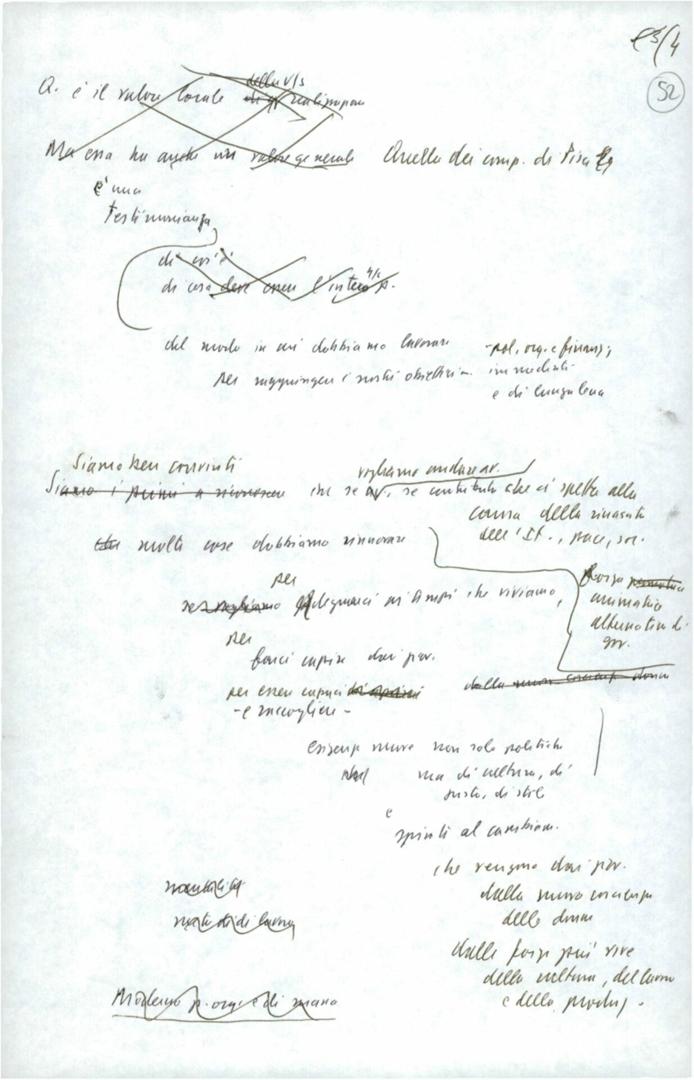 e3/4
52
della v/s
Q. è il valore locale di q/ realizzazione
Ma essa ha anche un valore generale Quella dei comp. di Pisa
è una
testimonianza
di cos'è
di cosa deve essere l'intero p.
del modo in cui dobbiamo lavorare - pol, org. e finanz;
per raggiungere i nostri obiettivi. immediati
e di lunga lena
Siamo ben convinti vogliamo andare av.
Siamo i primi a riconoscere che se av, se contributo che ci spetta alla
causa della rinascita
dell'It., pace, soc.
molte cose dobbiamo rinnovare
per forza
se vogliamo adeguarci ai tempi che viviamo, animatrice
alternativa di
gov.
per
farci capire dai giov.
per essere capaci di capire dalla nuova coscienza donne
- e raccogliere -
esigenze nuove non solo politiche
ma di cultura, di
gusto, di stile
e
spinte al cambiam.
che vengono dai giov.
mentalità dalla nuova coscienza
metodi di lavoro delle donne
dalle forze più vive
della cultura, del lavoro
Moderno p. org. e di massa e della produz.